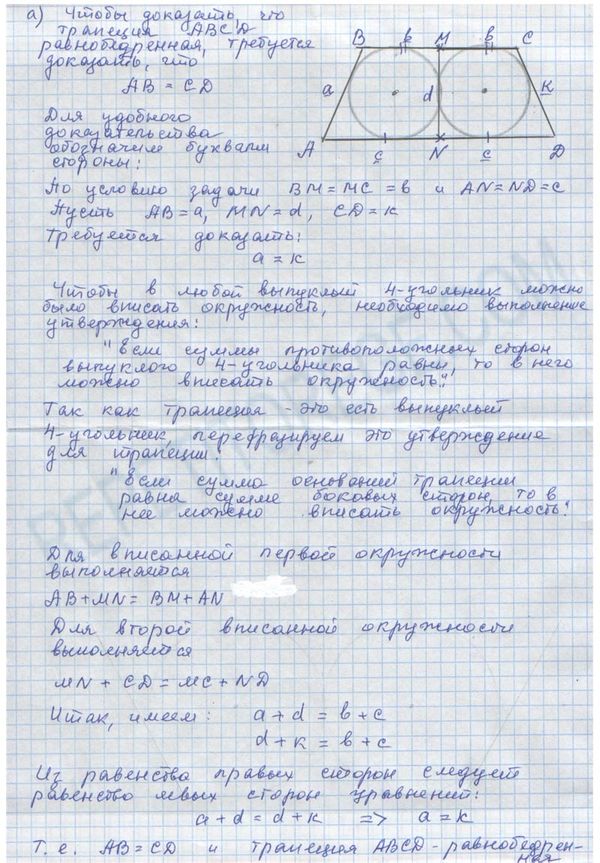 а) Чтобы доказать, что
трапеция ABCD
равнобедренная, требуется
доказать, что
AB = CD
B b M b C
a d к
A c N c D
Для удобного
доказательства
обозначим буквами
стороны:
По условию задачи BM = MC = b и AN = ND = c
Пусть AB = a, MN = d, CD = к
Требуется доказать:
a = к
Чтобы в любой выпуклый 4-угольник можно
было вписать окружность, необходимо выполнение
утверждения:
"Если суммы противоположных сторон
выпуклого 4-угольника равны, то в него
можно вписать окружность."
Так как трапеция - это есть выпуклый
4-угольник, перефразируем это утверждение
для трапеции
"Если сумма оснований трапеции
равна сумме боковых сторон, то в
нее можно вписать окружность."
Для вписанной первой окружности
выполняется
AB + MN = BM + AN
Для второй вписанной окружности
выполняется
MN + CD = MC + ND
Итак, имеем: a + d = b + c
d + к = b + c
Из равенства правых сторон следует
равенство левых сторон уравнений:
a + d = d + к => a = к
Т.е. AB = CD и трапеция ABCD - равнобедрен-
ная